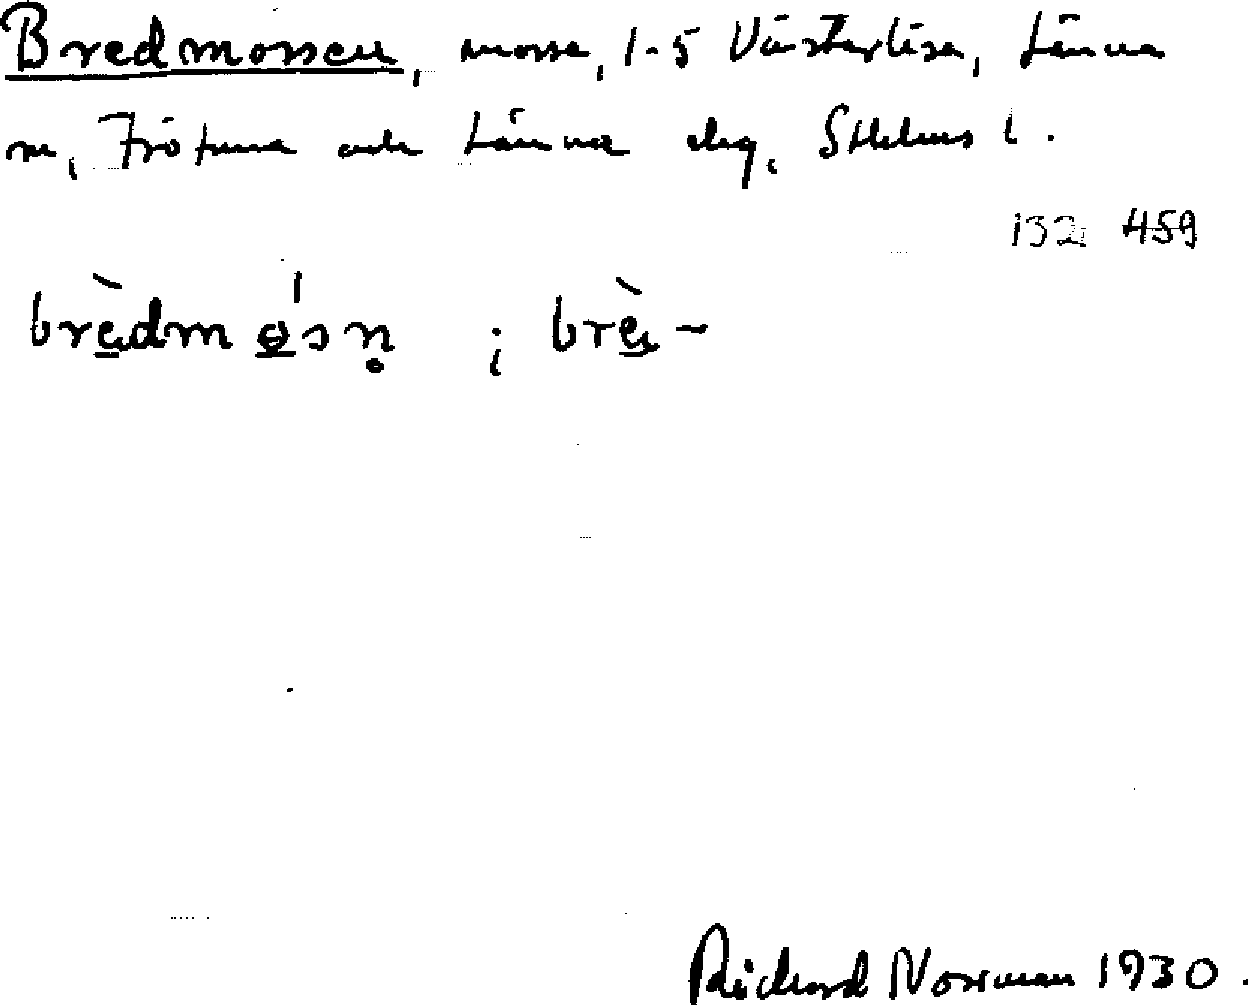 Bredmossen, mosse, 1-5 Västerlisa, Länna
sn, Frötuna och Länna slg, Sthlms l.
132 459
brèdmósn̥ ; brè-
Richard Norrman 1930.